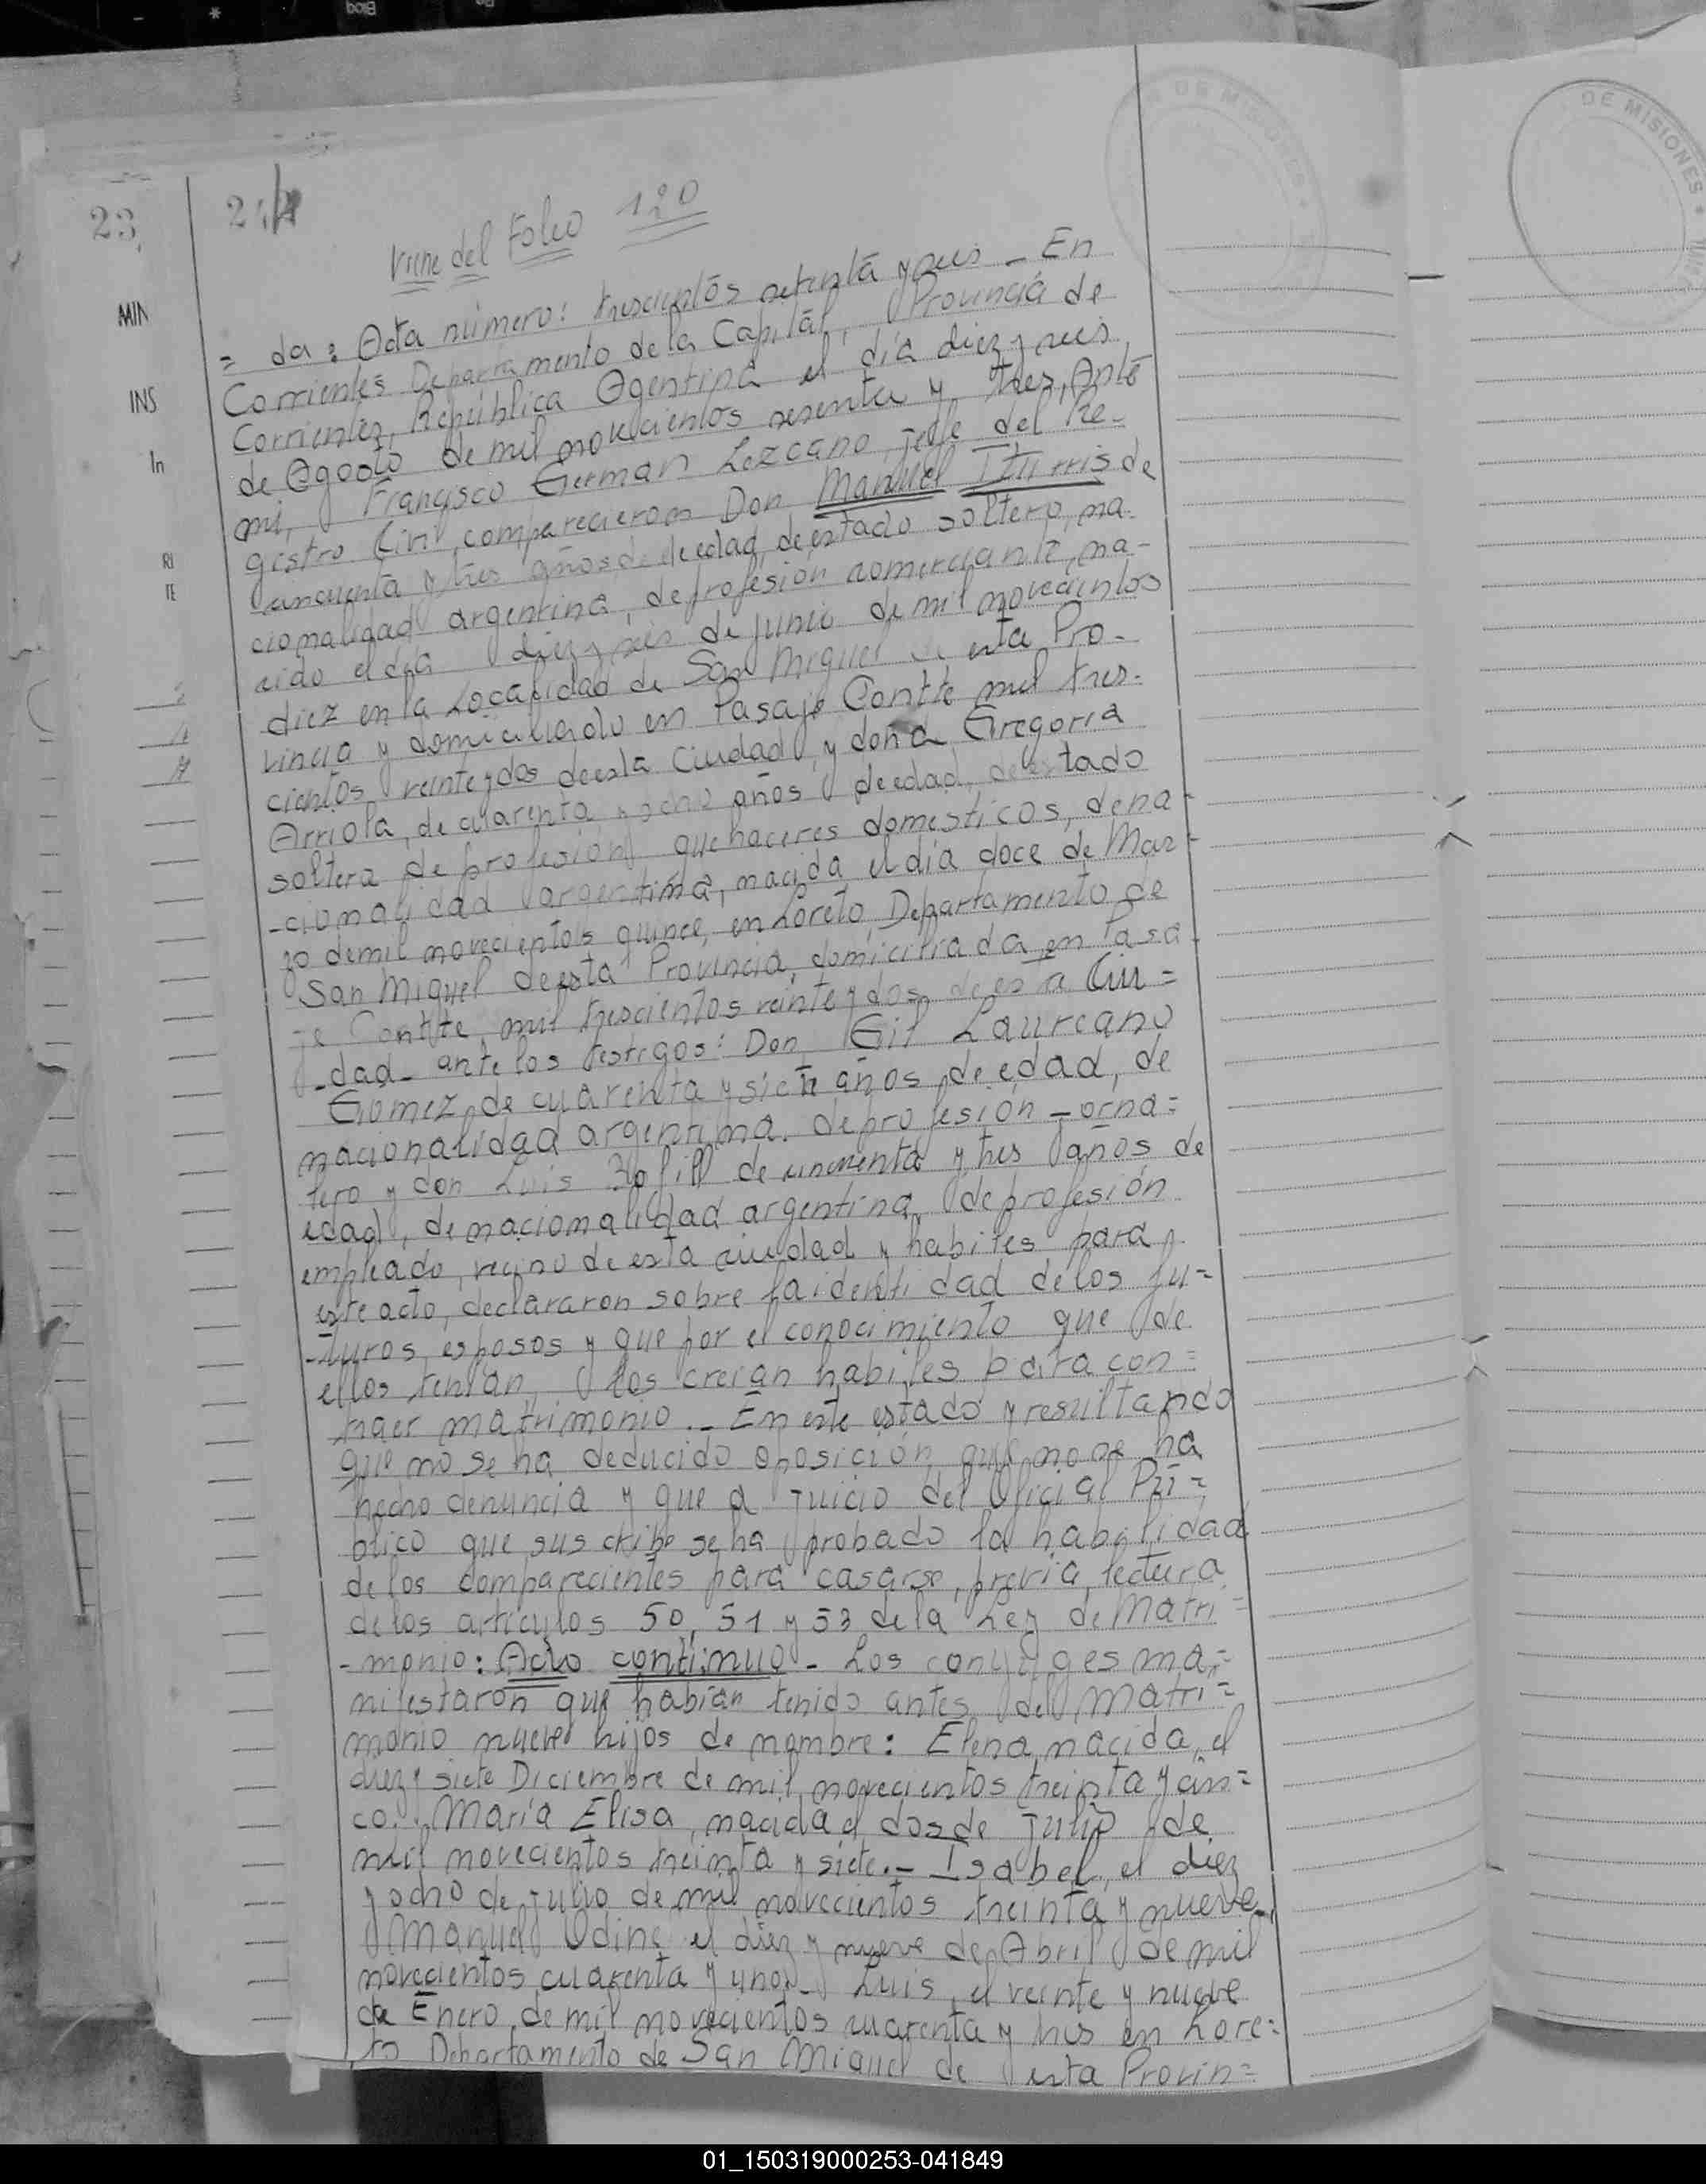 23
244
MIN
INS
In
RI
TE
DE MISIONES
DE MISIONES
Viene del Folio 120
= da: Acta número: trescientos setenta y seis - En
Corrientes Departamento de la Capital, Provincia de
Corrientes, República Agentina el día diez y seis
de Agosto de mil novecientos sesenta y tres, Ante
mi, Francisco German Lezcano, jefe del Re-
gistro Civil, comparecieron Don Manuel Iturris de
cincuenta y tres años de de edad, de estado soltero, na-
cionalidad argentina, de profesión comerciante, na-
cido el día diez y seis de junio de mil novecientos
diez en la Localidad de San Miguel de esta Pro-
vincia y domiciliado en Pasaje Contte mil tres-
cientos veinte y dos de esta Ciudad, y doña Gregoria
Arriola, de cuarenta y ocho años de edad, de estado
soltera de profesión quehaceres domesticos, de na-
-cionalidad argentina, nacida el día doce de Mar-
zo de mil novecientos quince, en Loreto, Departamento de
San Miguel de esta Provincia, domiciliada en Pasa-
je Contte, mil trescientos veinte y dos, de esta Ciu=
-dad- ante los testigos: Don Gil Laureano
Gomez, de cuarenta y siete años de edad, de
nacionalidad argentina. de profesión jorna=
lero y don Luis Bofill de cincuenta y tres años de
edad, de nacionalidad argentina, de profesión
empleado, vecino de esta ciudad y habiles para
este acto, declararon sobre la identidad de los fu=
-turos esposos y que por el conocimiento que de
ellos tenían, los creían habiles para con=
traer matrimonio.- En este estado y resultando
que no se ha deducido oposición, que no se ha
hecho denuncia y que a juicio del Oficial Pú=
blico que suscribe se ha probado la habilidad
de los comparecientes para casarse, previa lectura
de los artículos 50, 51 y 53 de la Ley de Matri=
-monio: Acto continuo- Los conyuges ma=
nifestaron que habían tenido antes del matri=
monio nueve hijos de nombre: Elena, nacida el
diez y siete Diciembre de mil novecientos treinta y cin=
co.- María Elisa, nacida el dos de Julio de
mil novecientos treinta y siete.- Isabel, el diez
y ocho de julio de mil novecientos treinta y nueve,
Manuel Odine el diez y nueve de Abril de mil
novecientos cuarenta y uno.- Luis, el veinte y nueve
de Enero de mil novecientos cuarenta y tres en Lore=
to Departamento de San Miguel de esta Provin=
01_150319000253-041849